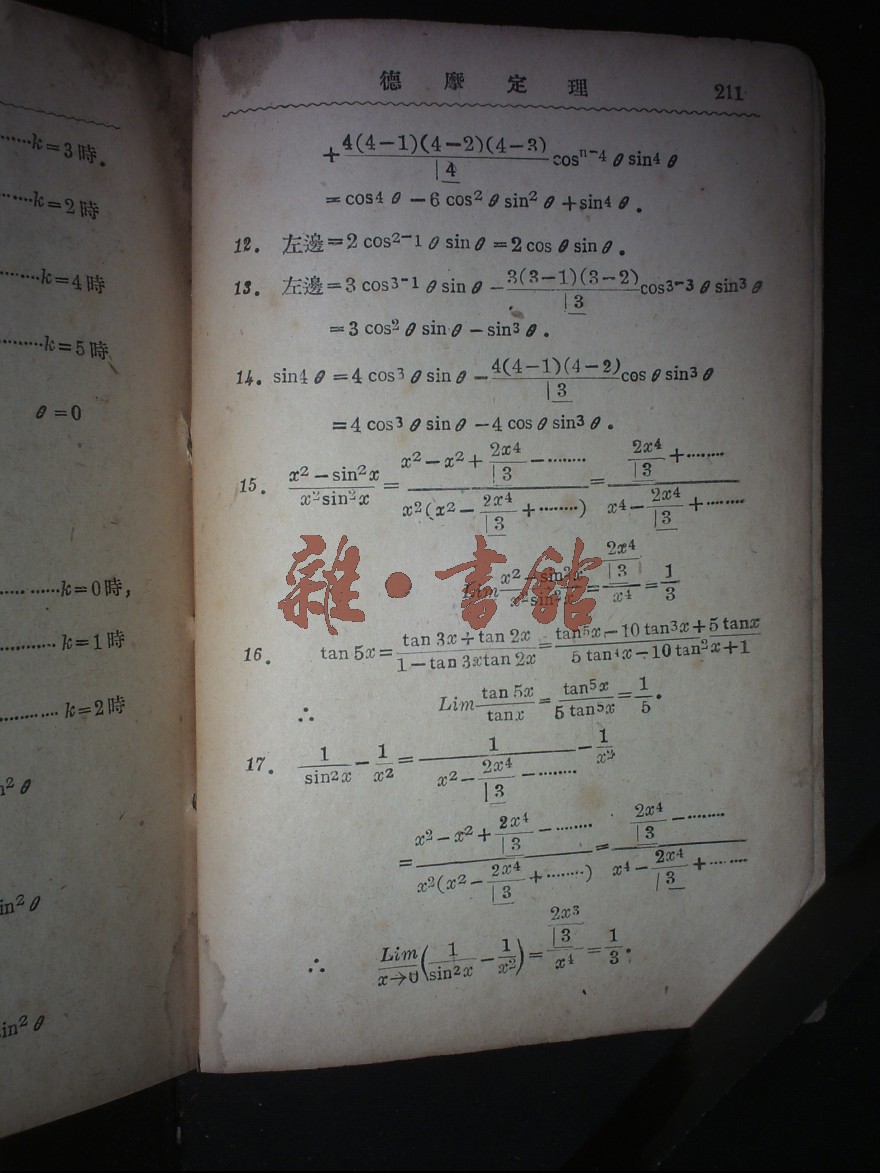 德摩定理 211
+ 4(4-1)(4-2)(4-3)/|4 cosⁿ⁻⁴θ sin⁴θ
=cos4θ-6cos²θsin²θ+sin4θ.
12. 左邊=2cos²⁻¹θsinθ=2cosθsinθ.
13. 左邊=3cos³⁻¹θsinθ-3(3-1)(3-2)/|3 cos³⁻³θsin³θ
=3cos²θsinθ-sin³θ.
14. sin4θ=4cos³θsinθ-4(4-1)(4-2)/|3 cosθsin³θ
=4cos³θsinθ-4cosθsin³θ.
15. (x²-sin²x)/(x²sin²x)=(x²-x²+2x⁴/|3-········)/(x²(x²-2x⁴/|3+········))=(2x⁴/|3+········)/(x⁴-2x⁴/|3+········)
Lim (x²-sin²x)/(x²sin²x)=(2x⁴/|3)/x⁴=1/3
16. tan5x=(tan3x+tan2x)/(1-tan3xtan2x)=(tan⁵x-10tan³x+5tanx)/(5tan⁴x-10tan²x+1)
∴ Lim tan5x/tanx=tan⁵x/5tan⁵x=1/5.
17. 1/sin²x-1/x²=1/(x²-2x⁴/|3-········)-1/x²
=(x²-x²+2x⁴/|3-········)/(x²(x²-2x⁴/|3+········))=(2x⁴/|3-········)/(x⁴-2x⁴/|3+········)
∴ Lim x→0 (1/sin²x-1/x²)=(2x³/|3)/x⁴=1/3.
······k=3時.
······k=2時
········k=4時
·········k=5時
θ=0
············k=0時,
············k=1時
············k=2時
n²θ
in²θ
in²θ
雜·書館